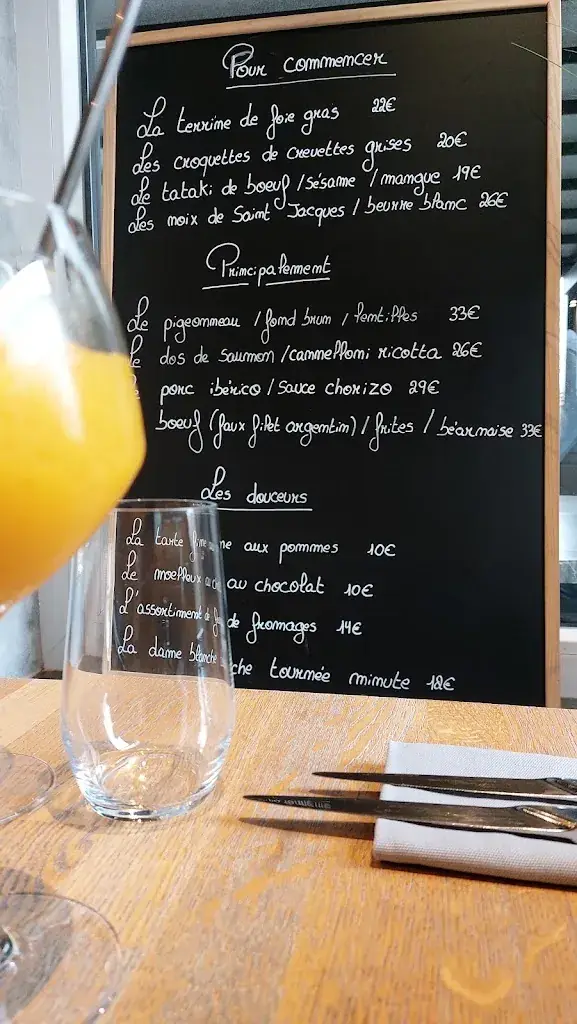 Pour commencer
La terrine de foie gras 22€
Les croquettes de crevettes grises 20€
Le tataki de boeuf / sésame / mangue 19€
Les noix de Saint Jacques / beurre blanc 26€
Principalement
Le pigeonneau / fond brun / lentilles 33€
Le dos de saumon / cannelloni ricotta 26€
porc ibérico / sauce chorizo 29€
boeuf (faux filet argentin) / frites / béarnaise 33€
Les douceurs
La tarte fine aux pommes 10€
Le moelleux au chocolat 10€
L'assortiment de fromages 14€
La dame blanche tournée minute 12€